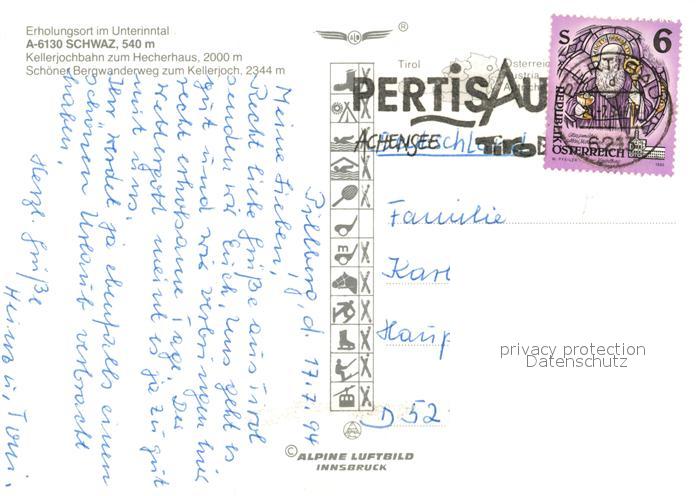 Erholungsort im Unterinntal
A-6130 SCHWAZ, 540 m
Kellerjochbahn zum Hecherhaus, 2000 m
Schöner Bergwanderweg zum Kellerjoch, 2344 m
Pillberg, d. 17.7.94
Meine Lieben,
Recht liebe Grüße aus Tirol
senden wir Euch, uns geht es
gut und wir verbringen hier
recht erholsame Tage. Der
Wettergott meint es ja zu gut
mit uns.
Ihr werdet ja ebenfalls einen
schönen Urlaub verbracht
haben,
Herzl. Grüße
Heinz u. Toni.
®
Tirol
Österreich
Austria
PERTISAU
ACHENSEE TIROL
Deutschland
S 6
REPUBLIK
ÖSTERREICH
PERTISAU
Familie
Karl
Haup
D 52
privacy protection
Datenschutz
© ALPINE LUFTBILD
INNSBRUCK